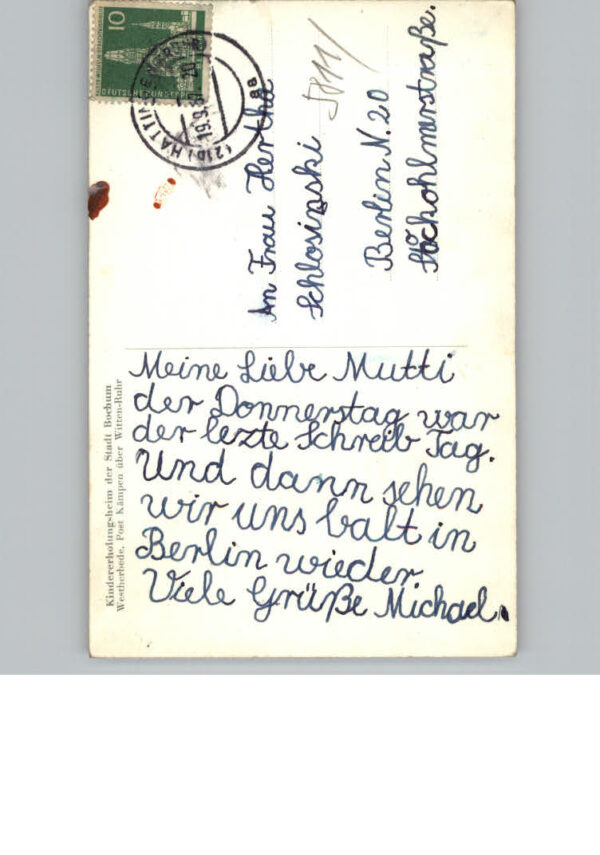 10
DEUTSCHE BUNDESPOST
(21b) HATTINGEN
19.9.
20
An Frau Hertha
Schlosinski
Berlin N. 20
Stockohlmerstraße.
Kindererholungsheim der Stadt Bochum
Westherbede, Post Kämpen über Witten-Ruhr
Meine Liebe Mutti
der Donnerstag war
der lezte Schreib Tag.
Und dann sehen
wir uns balt in
Berlin wieder
Viele Grüße Michael.